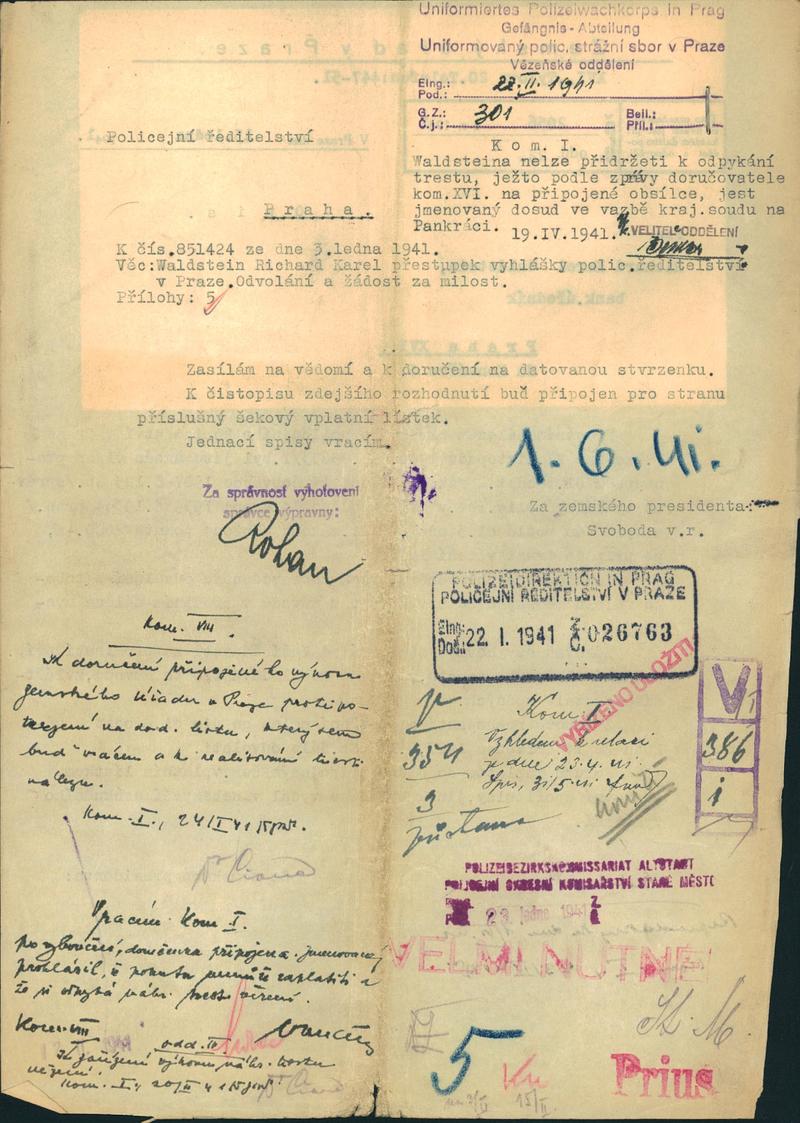 Uniformiertes Polizeiwachkorps in Prag
Gefängnis-Abteilung
Uniformovaný polic. strážní sbor v Praze
Vězeňské oddělení
Eing.:
Pod.: 22.II.1941
G.Z.:
Č.j.: 301
Beil.:
Příl.:
Policejní ředitelství
Praha.
Kom. I.
Waldsteina nelze přidržeti k odpykání
trestu, ježto podle zprávy doručovatele
kom.XVI. na připojené obsílce, jest
jmenovaný dosud ve vazbě kraj.soudu na
Pankráci. 19.IV.1941. VELITEL ODDĚLENÍ
K čís.851424 ze dne 3.ledna 1941.
Věc:Waldstein Richard Karel přestupek vyhlášky polic.ředitelství
v Praze.Odvolání a žádost za milost.
Přílohy: 5
Zasílám na vědomí a k doručení na datovanou stvrzenku.
K čistopisu zdejšího rozhodnutí buď připojen pro stranu
příslušný šekový vplatní lístek.
Jednací spisy vracím.
1.6.41.
Za správnost vyhotovení
správce výpravny:
Rohan
Za zemského presidenta:
Svoboda v.r.
POLIZEIDIREKTION IN PRAG
POLICEJNÍ ŘEDITELSTVÍ V PRAZE
Eing.
Došl. 22. I. 1941 Z. Č. 026763
VYŘÍZENO ULOŽITI
Kom. VIII.
K doručení připojeného výnosu
zemského úřadu v Praze proti po-
tvrzení na dod. listu, který sem
buď vrácen a k
Kom. I., 24/I 41
V
354
3
Kom I.
Vzhledem k relaci
ze dne 23.4.41
V
386
i
POLIZEIBEZIRKSKOMMISSARIAT ALTSTADT
POLICEJNÍ OKRESNÍ KOMISAŘSTVÍ STARÉ MĚSTO
23 ledna 1941
VELMI NUTNÉ
Vracím Kom I.
doručenka připojena. Jmenovaný
prohlásil, že pokutu nemůže zaplatiti a
že si odpyká náhr. trest vězení.
Kom. VIII odd. IV
K zařízení výkonu náhr. trestu
vězení.
Kom. I.,
St. M.
5
Prius